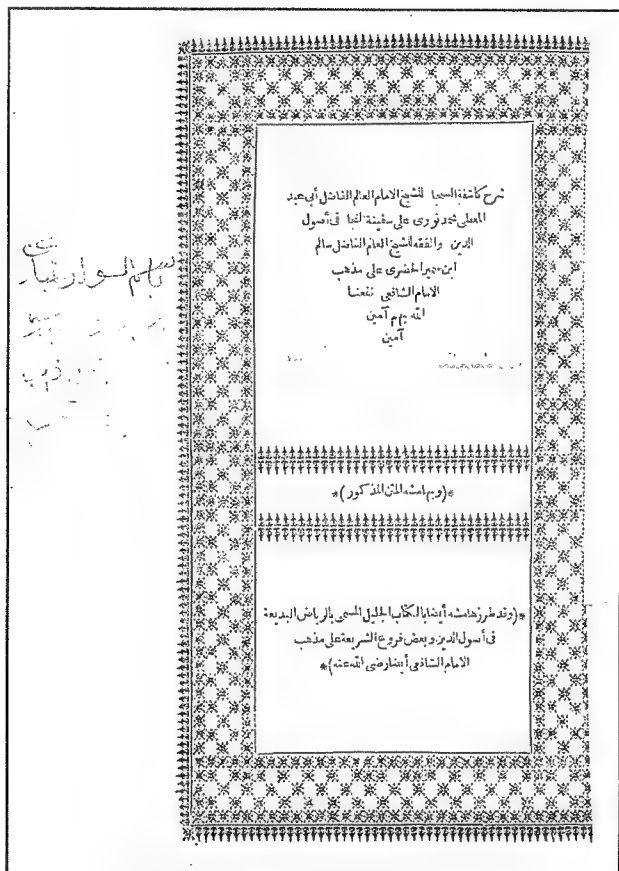 شرح كاشفة السجا للشيخ الامام العالم الفاضل أبى عبد
المعطى محمد نووى على سفينة النجا فى أصول
الدين والفقه للشيخ العام الفاضل سالم
ابن سمير الحضرى على مذهب
الامام الشافعى نفعنا
الله بهم آمين
آمين
*(وبهامشه المتن المذكور)*
*(وقد طرز هامشه أيضا بالكتاب الجليل المسمى بالرياض البديعة
فى أصول الدين وبعض فروع الشريعة على مذهب
الامام الشافعى أيضا رضى الله عنه)*